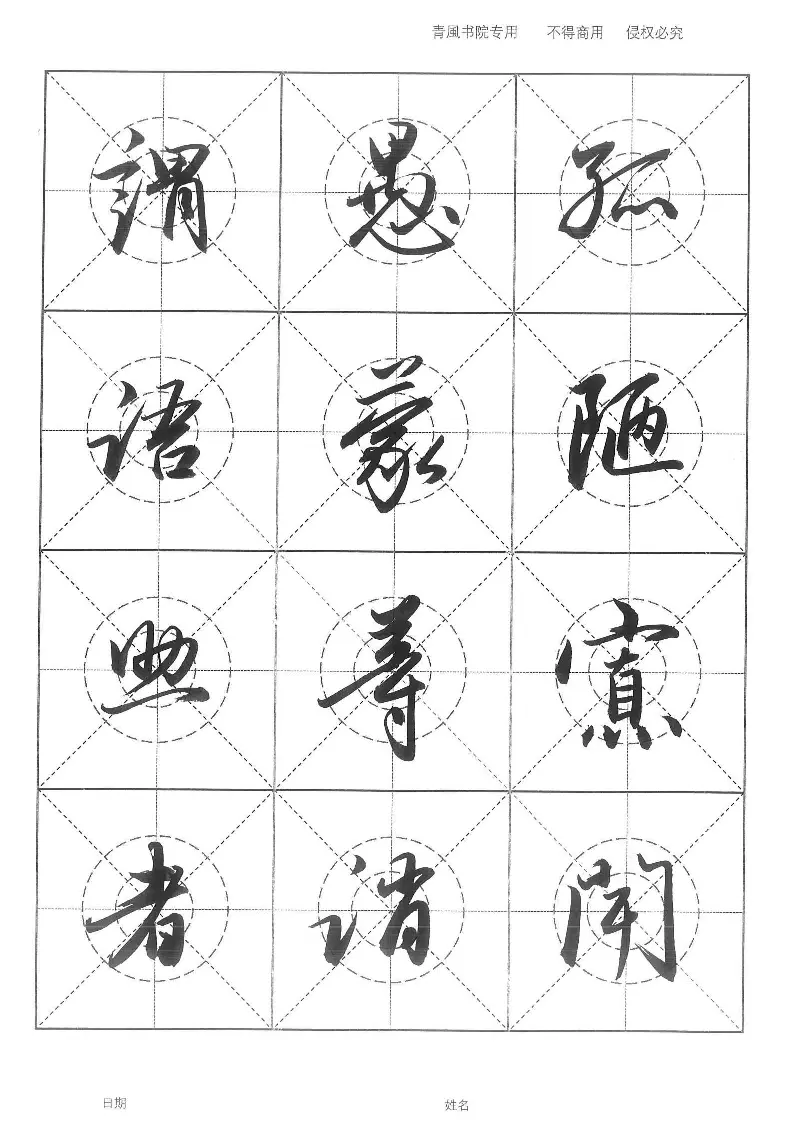 青風书院专用 不得商用 侵权必究
孤陋寡聞
愚蒙等诮
謂语助者
日期 姓名